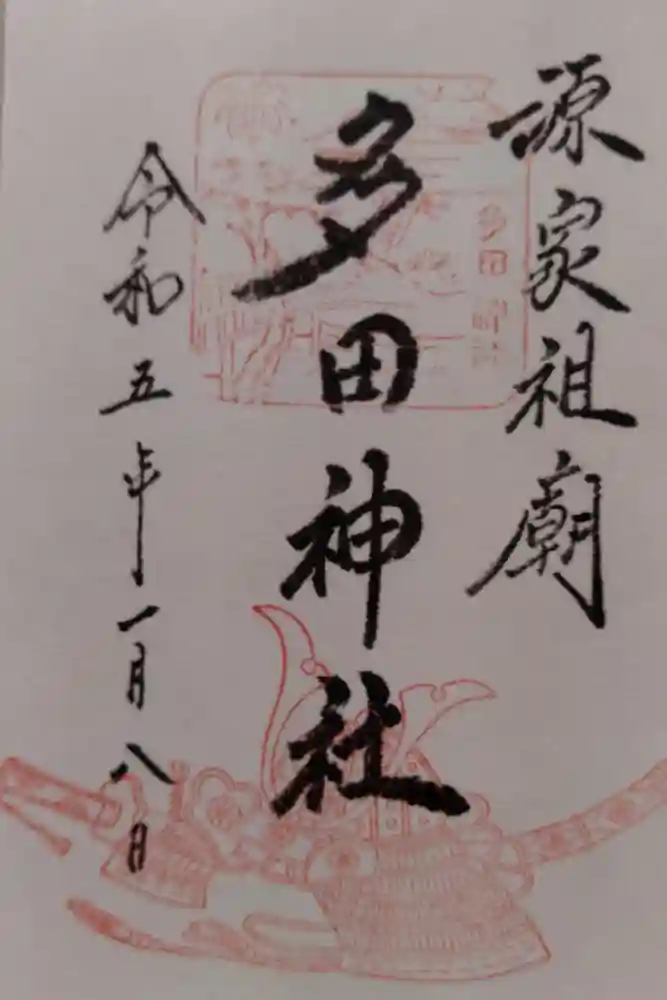 源家祖廟
多田神社
多田神社
令和五年一月八日